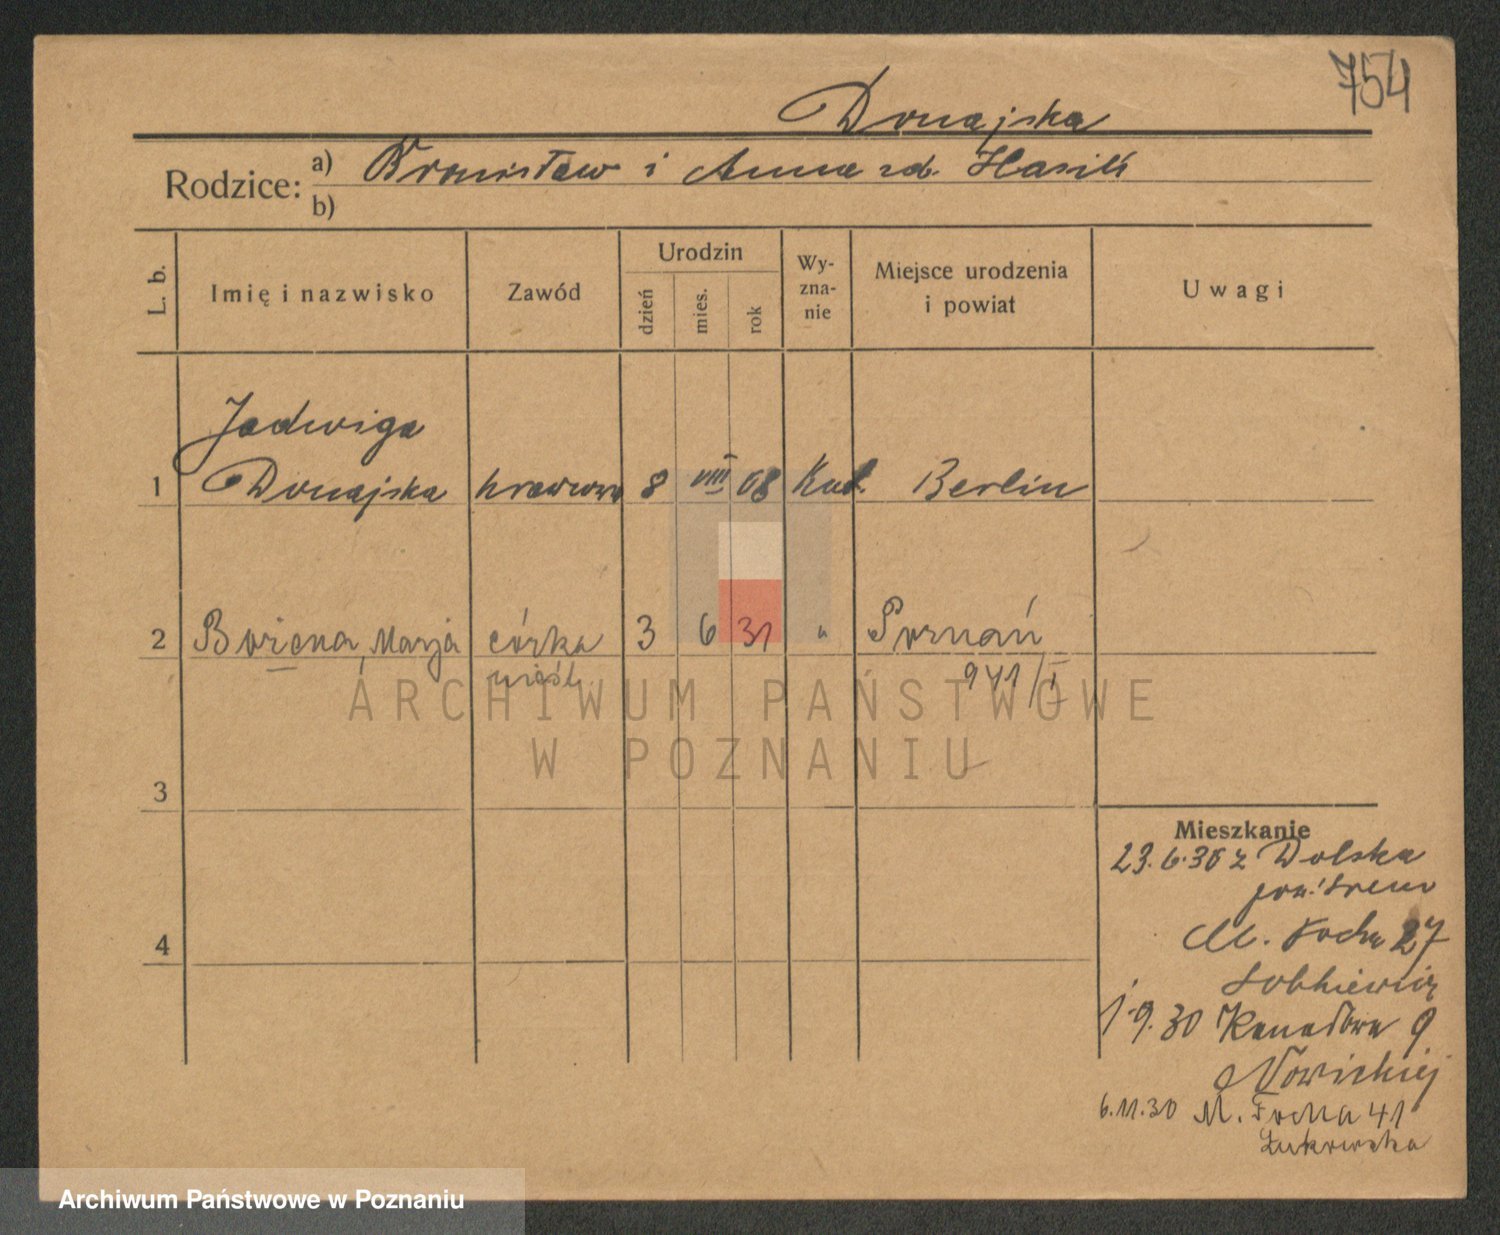 754
Donajska
Rodzice: a) Bronisław i Anna zd. Hasik
b)
L. b. Imię i nazwisko Zawód Urodzin dzień mies. rok Wy-zna-nie Miejsce urodzenia i powiat Uwagi
Jadwiga
1 Donajska krawcowa 8 VIII 08 Kat. Berlin
2 Bożena, Marja córka 3 6 31 " Poznań
nieśl. 941/I
ARCHIWUM PAŃSTWOWE
W POZNANIU
3
Mieszkanie
23.6.30 z Dolska
pow. Śrem
4
M. Focha 27
Sobkiewicz
1.9.30 Kanałowa 9
Nowickiej
6.11.30 M. Focha 41
Żukowska
Archiwum Państwowe w Poznaniu